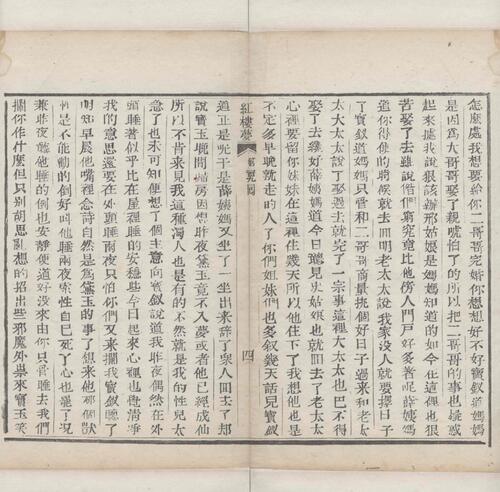 怎麽處我想要給你二哥哥完婚你想想好不好寶釵道媽媽
是因爲大哥哥娶了親唬怕了的所以把二哥哥的事也疑惑
起來據我說狠該辦邢姑娘是媽媽知道的如今在這裡也狠
苦娶了去雖說偺們窮究竟比他傍人門戶好多著呢薛姨媽
道你得便的時候就去回明老太太說我家没人就要擇日子
了寶釵道媽媽只管和二哥哥商量挑個好日子過來和老太
太大太太說了娶過去就完了一宗事這裡大太太也巴不得
娶了去纔好薛姨媽道今日聽見史姑娘也就回去了老太太
心裡要留你妹妹在這裡住幾天所以他住下了我想他也是
不定多早晩就走的人了你們姐妹們也多叙幾天話兒寶釵
紅樓夢 第九囘 四
道正是呢于是薛姨媽又坐了一坐出來辭了衆人回去了却
說寶玉晚間歸房因想昨夜黛玉竟不入夢或者他已經成仙
所以不肯來見我這種濁人也是有的不然就是我的性兒太
急了也未可知便想了個主意向寶釵說道我昨夜偶然在外
頭睡著似乎比在屋裡睡的安穩些今日起來心裡也覺清淨
我的意思還要在外頭睡兩夜只怕你們又來攔我寶釵聽了
明知早晨他嘴裡念詩自然是爲黛玉的事了想來他那個獃
性是不能勸的倒好叫他睡兩夜索性自己死了心也罷了况
兼昨夜聽他睡的倒也安靜便道好没來由你只管睡去我們
攔你作什麽但只别胡思亂想的招出些邪魔外祟來寶玉笑